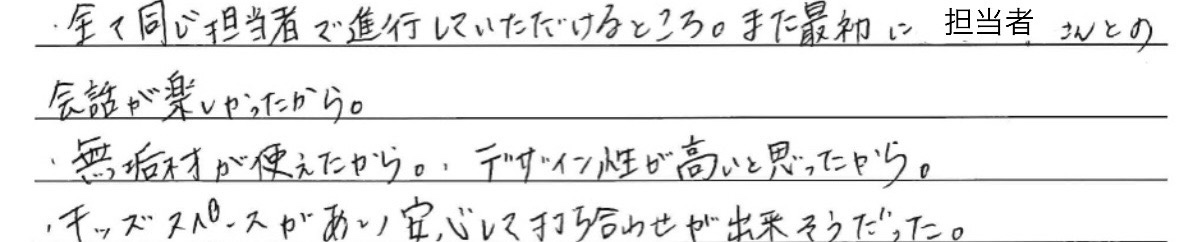 ・全て同じ担当者で進行していただけるところ。また最初に 担当者 さんとの
会話が楽しかったから。
・無垢材が使えたから。・デザイン性が高いと思ったから。
・キッズスペースがあり安心して打ち合わせが出来そうだった。